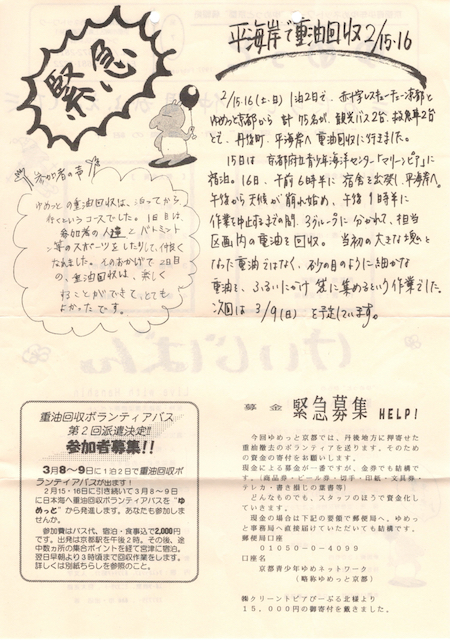 緊急
平海岸で重油回収 2/15・16
2/15・16(土・日)1泊2日で、赤十字レスキューチェーン京都と
ゆめっと京都から 計45名が、観光バス2台、救急車2台
とで、丹後町、平海岸へ重油回収に行きました。
15日は 京都府立青少年海洋センター「マリーンピア」に
宿泊。16日、午前6時半に 宿舎を出発し、平海岸へ。
午后から天候が崩れ始め、午后1時半に
作業を中止するまでの間、3グループに分かれて、担当
区画内の重油を回収。当初の大きな塊と
なった重油ではなく、砂の目のように細かな
重油を、ふるいにかけ 袋に集めるという作業でした。
次回は 3/9(日) を予定しています。
参加者の声
ゆめっとの重油回収は、泊ってから
行くというコースでした。1日目は、
参加者の人達とバトミント
ン等のスポーツをしたりして、仲良く
なれました。そのおかげで2日目
の、重油回収は、楽しく
行うことができて、とても
よかったです。
重油回収ボランティアバス
第2回派遣決定!!
参加者募集!!
3月8〜9日に1泊2日で重油回収ボ
ランティアバスが出ます!
2月15・16日に引き続いて3月8〜9日
に日本海へ重油回収ボランティアバスを“ゆ
めっと”から発進します。あなたも参加しま
せんか。
参加費はバス代、宿泊・食事込で2,000円
です。出発は京都駅を午後2時。その後、途
中数ヵ所の集合ポイントを経て宮津に宿泊。
翌日早朝より3時頃まで回収作業をします。
詳しくは別紙ちらしを参照のこと。
募金 緊急募集 HELP!
今回ゆめっと京都では、丹後地方に押寄せた
重油撤去のボランティアを送ります。そのため
の資金の寄付をお願いします。
現金による募金が一番ですが、金券でも結構
です。(商品券・ビール券・切手・印紙・文具券・
テレカ・書き損じの葉書等)
どんなものでも、スタッフのほうで資金化し
ていきます。
現金の場合は下記の要領で郵便局へ、ゆめっ
と事務局へ直接届けていただいても結構です。
郵便局口座
01050-0-4099
口座名
京都青少年ゆめネットワーク
(略称ゆめっと京都)
㈱クリーントピアぴーぷる北様より
15,000円の御寄付を戴きました。